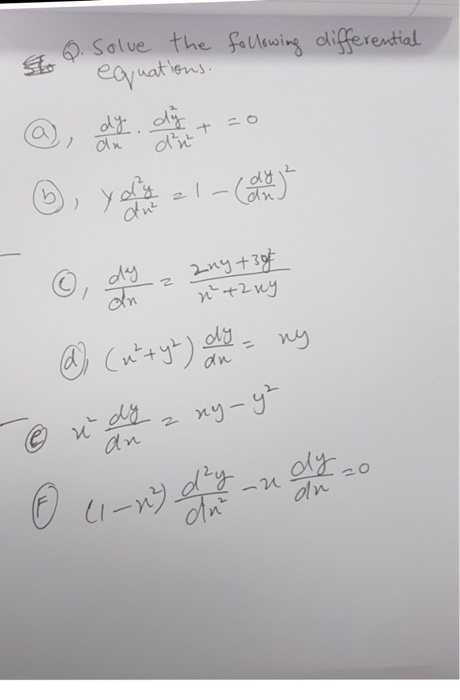 Q. Solve the following differential
equations.
(a), dy/dx . d²y/d²x² + = 0
(b), y d²y/dx² = 1 - (dy/dx)²
(c), dy/dx = (2xy + 3y²)/(x² + 2xy)
(d), (x² + y²) dy/dx = xy
(e) x² dy/dx = xy - y²
(F) (1 - x²) d²y/dx² - x dy/dx = 0